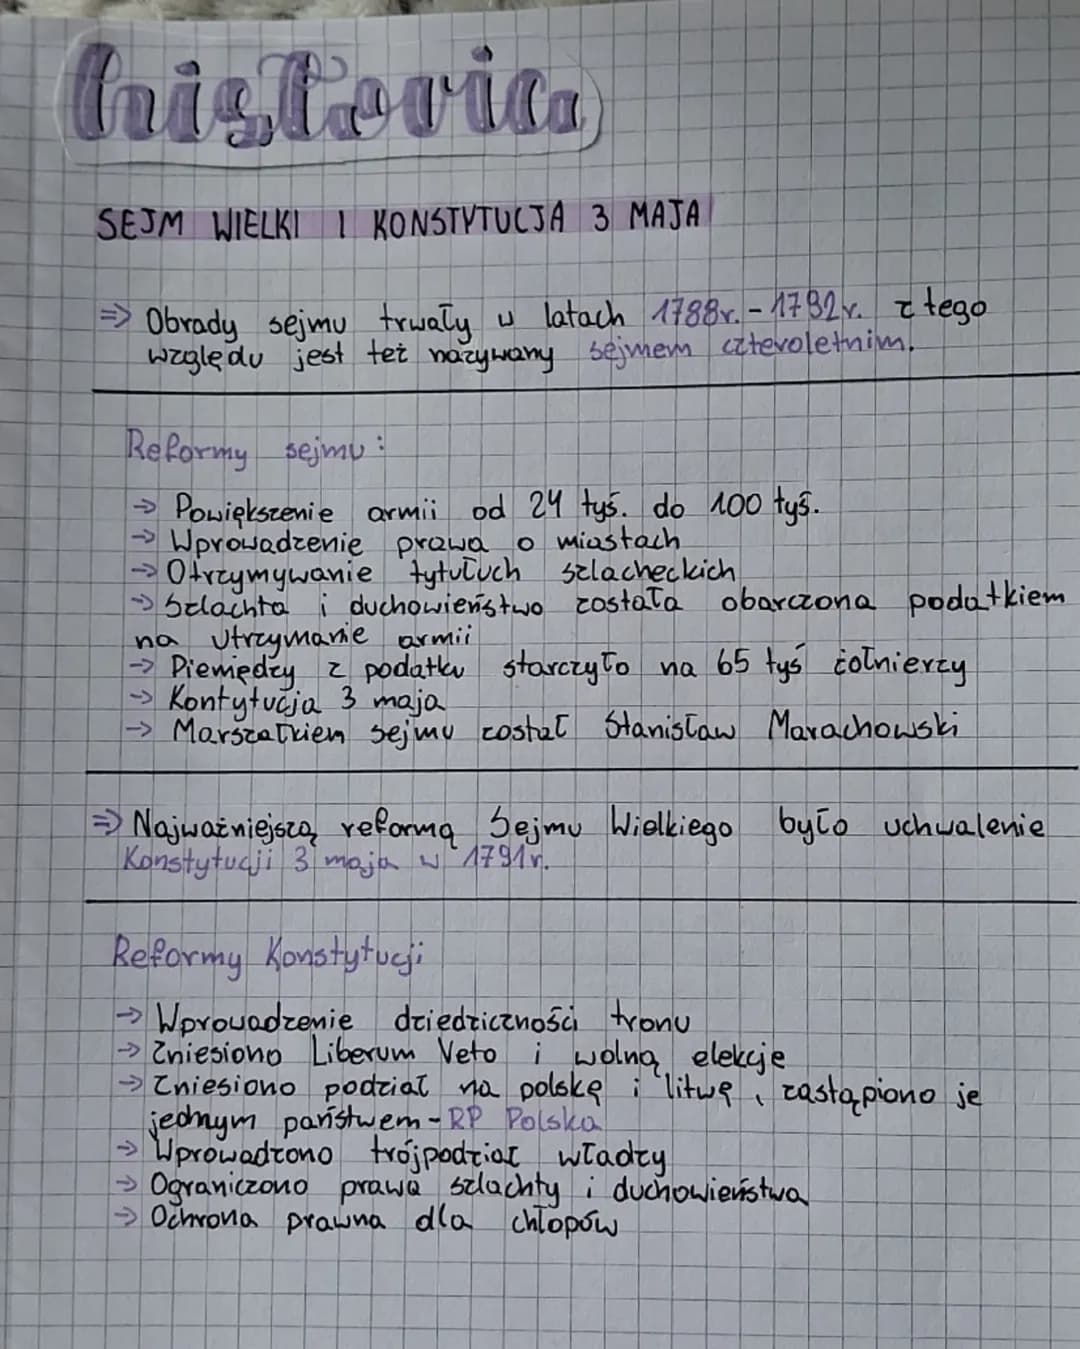 historia
SEJM WIELKI I KONSTYTUCJA 3 MAJA
=> Obrady sejmu trwały w latach 1788r. - 1792r. z tego
względu jest też nazywany sejmem czteroletnim.
Reformy sejmu:
-> Powiększenie armii od 24 tyś. do 100 tyś.
-> Wprowadzenie prawa o miastach
-> Otrzymywanie tytułuch szlacheckich
-> Szlachta i duchowieństwo została obarczona podatkiem
na utrzymanie armii
-> Pieniędzy z podatku starczyło na 65 tyś żołnierzy
-> Kontytucja 3 maja
-> Marszałkiem sejmu został Stanisław Marachowski
=> Najważniejszą reformą Sejmu Wielkiego było uchwalenie
Konstytucji 3 maja w 1791r.
Reformy Konstytucji
-> Wprowadzenie dziedziczności tronu
-> Zniesiono Liberum Veto i wolną elekcje
-> Zniesiono podział na polskę i litwę, zastąpiono je
jednym państwem - RP Polska
-> Wprowadzono trójpodział władzy
-> Ograniczono prawa szlachty i duchowieństwa
-> Ochrona prawna dla chłopów